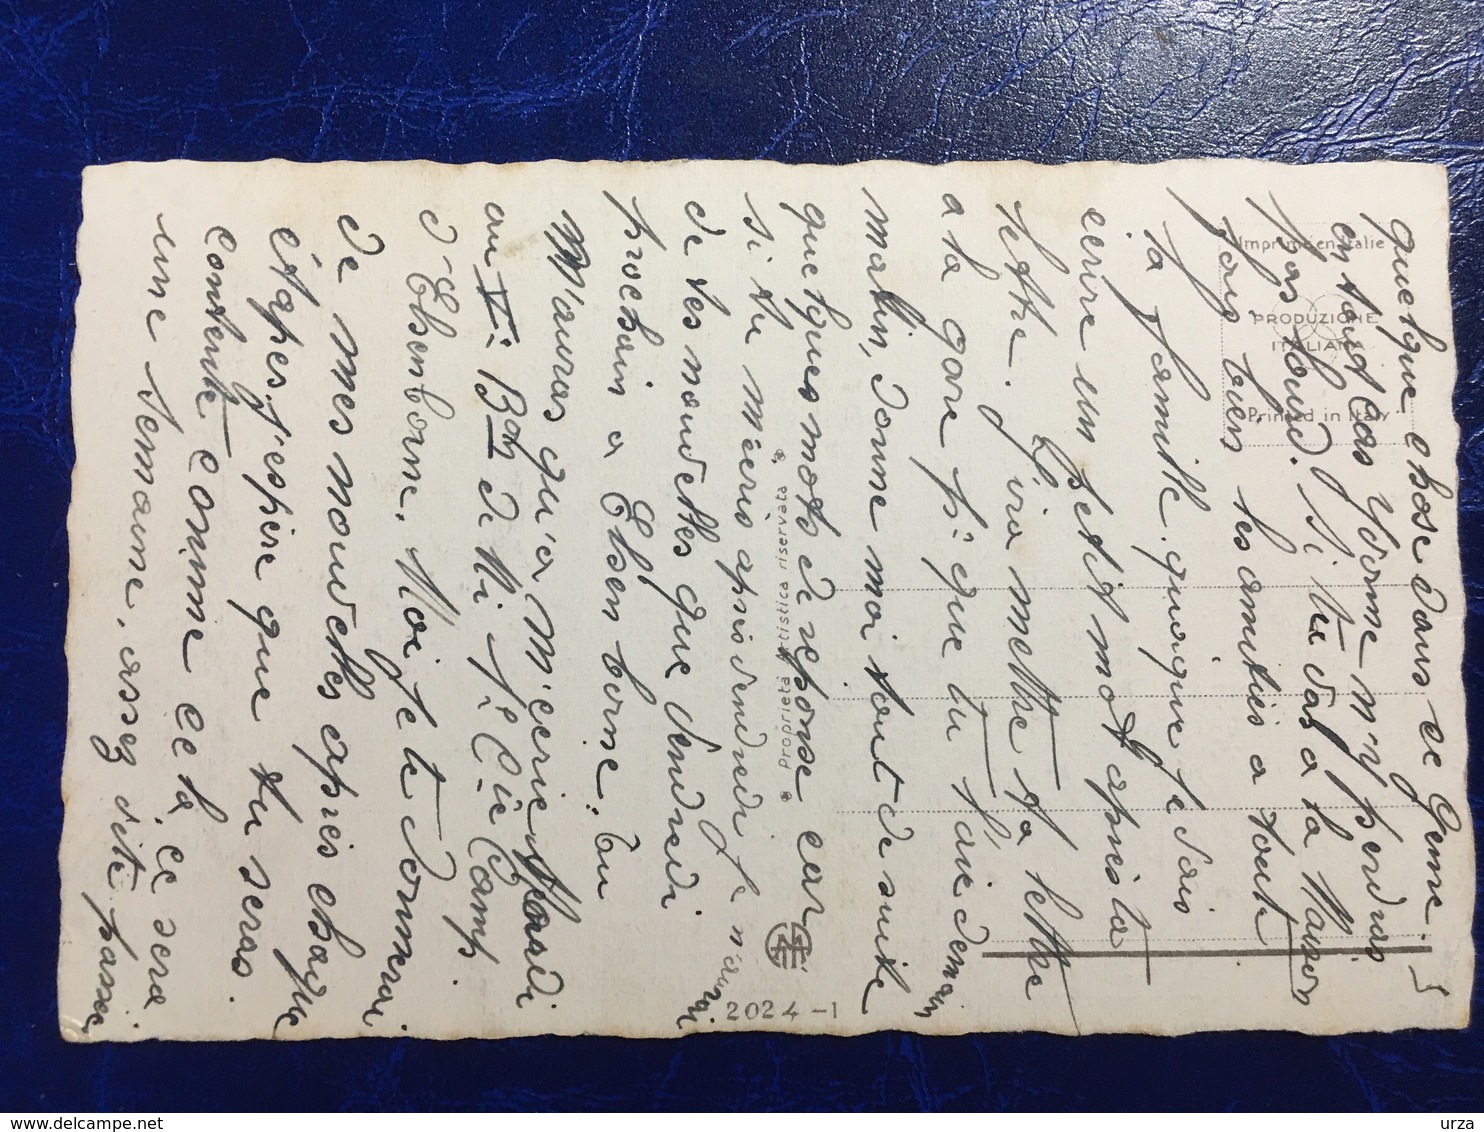 quelque chose dans ce genre.
en tout cas Yvonne n'y perdras
pas Louis. Si tu vas a la Maison
fais bien les amitiés a toute
ta famille. quoique je vais
ecrire un petit mot après la
lettre. Je irai mettre ta lettre
a la gare pr que tu l'aie demain
matin, donne moi tout de suite
quelques mots de reponse car
si tu m'ecris après vendredi je n'aurai
de tes nouvelles que Vendredi
prochain a Elsenborne. Tu
M'auras qu'a M'ecrire Mardi
au Vi. Bon de Mi 1e Cie Camp
d'Elsenborne. Moi je te donnerai
de mes nouvelles après chaque
étapes. J'espère que tu seras
Contente comme cela, ce sera
une semaine, assez vite passé
Imprimé en Italie
PRODUZIONE
ITALIANA
Printed in Italy
* Proprietà artistica riservata *
2024-1
urza